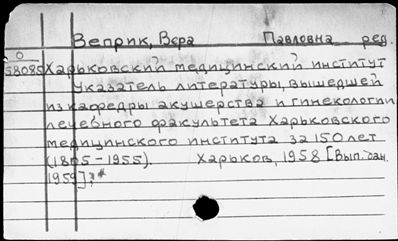 Веприк, Вера Павловна ред.
0
58085 Харьковский медицинский институт
Указатель литературы, вышедшей
из кафедры акушерства и гинекологии
лечебного факультета Харьковского
медицинского института за 150 лет
(1805-1955). Харьков, 1958 [Вып. дан.
1959];*